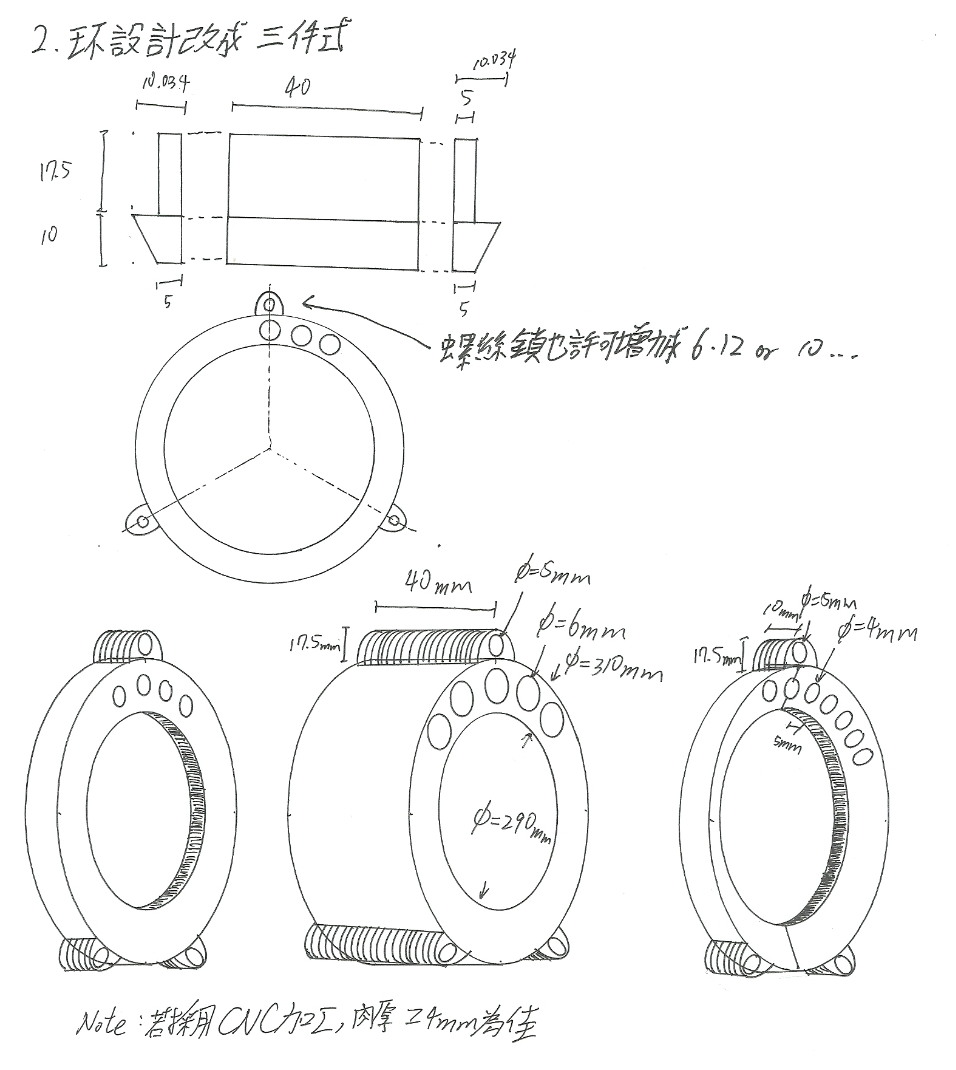 2. 环設計改成 三件式
10.034
40
10.034
5
17.5
10
5
5
螺絲鎖也許可增加成 6.12 or 10...
40mm
φ=5mm
17.5mm
φ=6mm
φ=310mm
φ=290mm
10mm
φ=5mm
φ=4mm
17.5mm
5mm
Note : 若採用 CNC 加工, 肉厚 ≥4mm 為佳